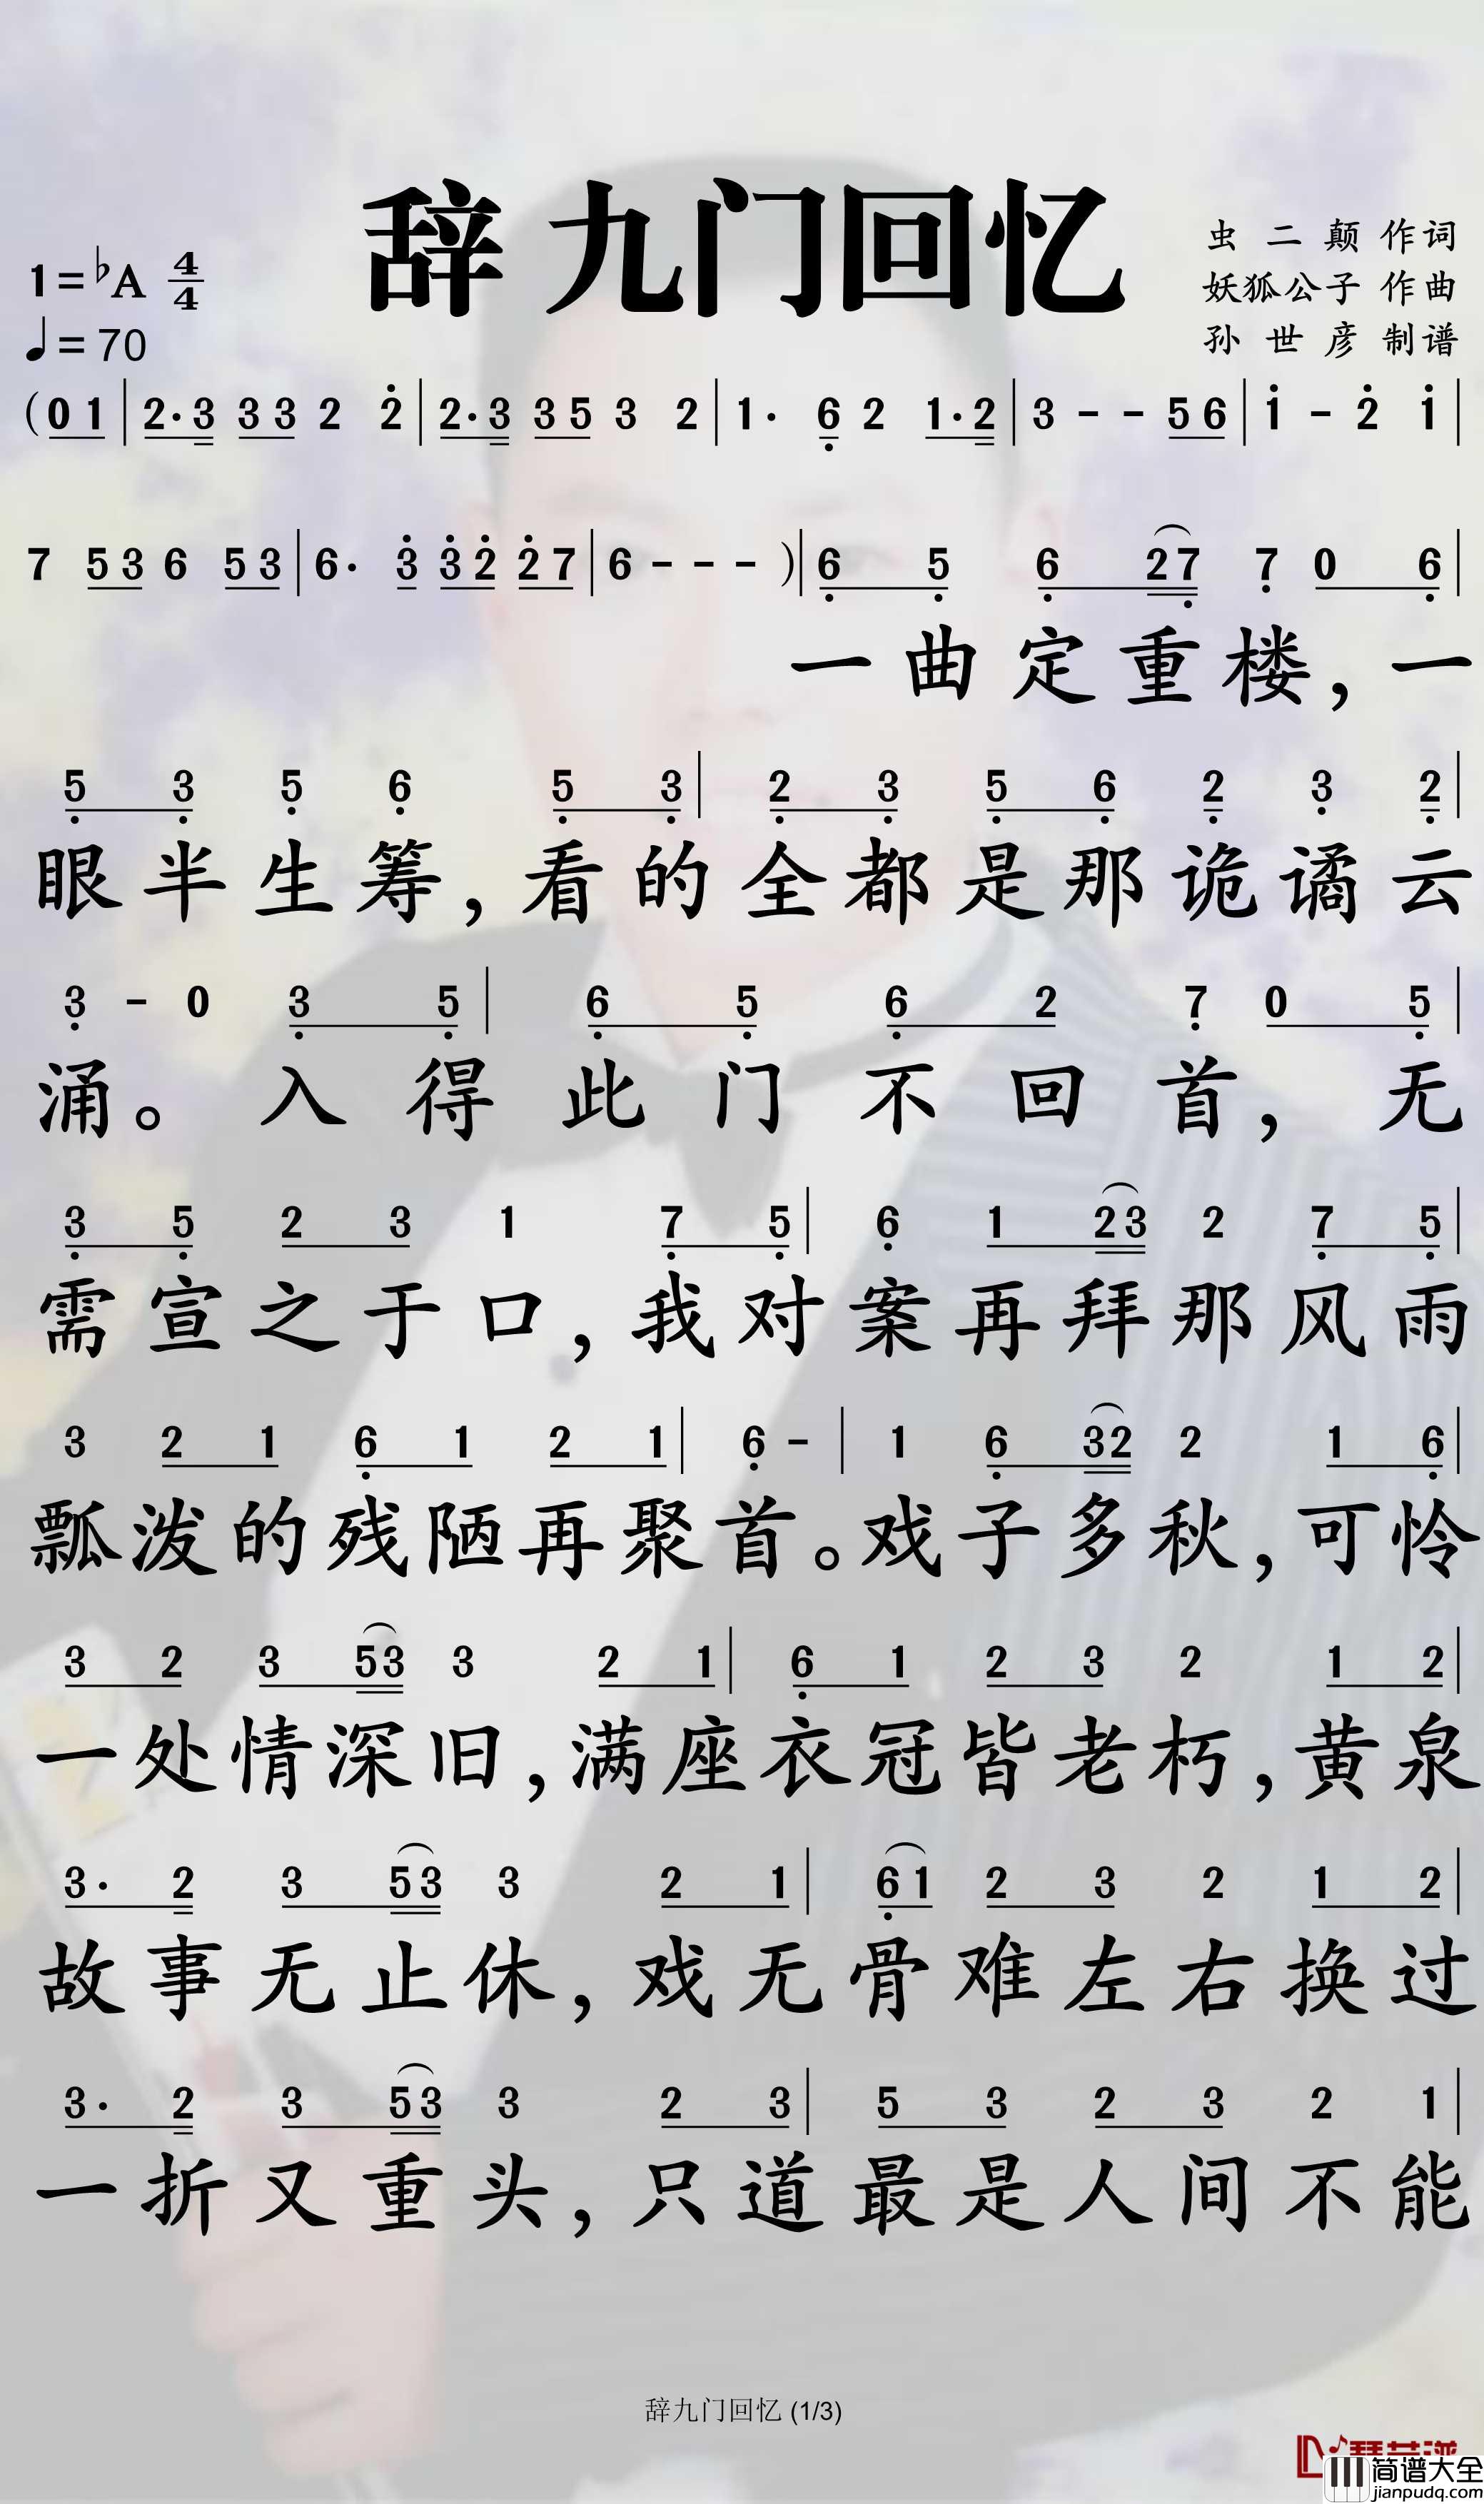 辞九门回忆
虫二颠 作词
1=♭A 4/4
妖狐公子 作曲
♩=70
孙世彦 制谱
(0 1 | 2· 3 3 3 2 2 | 2· 3 3 5 3 2 | 1· 6 2 1· 2 | 3 - - 5 6 | 1 - 2 1 |
7 5 3 6 5 3 | 6· 3 3 2 2 7 | 6 - - - )| 6 5 6 2 7 7 0 6 |
一曲定重楼，一
5 3 5 6 5 3 | 2 3 5 6 2 3 2 |
眼半生筹，看的全都是那诡谲云
3 - 0 3 5 | 6 5 6 2 7 0 5 |
涌。入得此门不回首，无
3 5 2 3 1 7 5 | 6 1 2 3 2 7 5 |
需宣之于口，我对案再拜那风雨
3 2 1 6 1 2 1 | 6 - | 1 6 3 2 2 1 6 |
瓢泼的残陋再聚首。戏子多秋，可怜
3 2 3 5 3 3 2 1 | 6 1 2 3 2 1 2 |
一处情深旧，满座衣冠皆老朽，黄泉
3· 2 3 5 3 3 2 1 | 6 1 2 3 2 1 2 |
故事无止休，戏无骨难左右换过
3· 2 3 5 3 3 2 3 | 5 3 2 3 2 1 |
一折又重头，只道最是人间不能
辞九门回忆 (1/3)
简谱大全
jianpudq.com